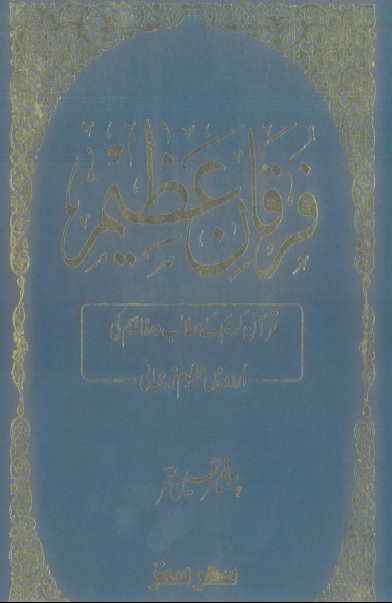 فُرقانِ عَظِیم
قرآن کریم کے مطالب و مفاہیم کی
اُردو میں منظوم ترجمانی
سحر سنز